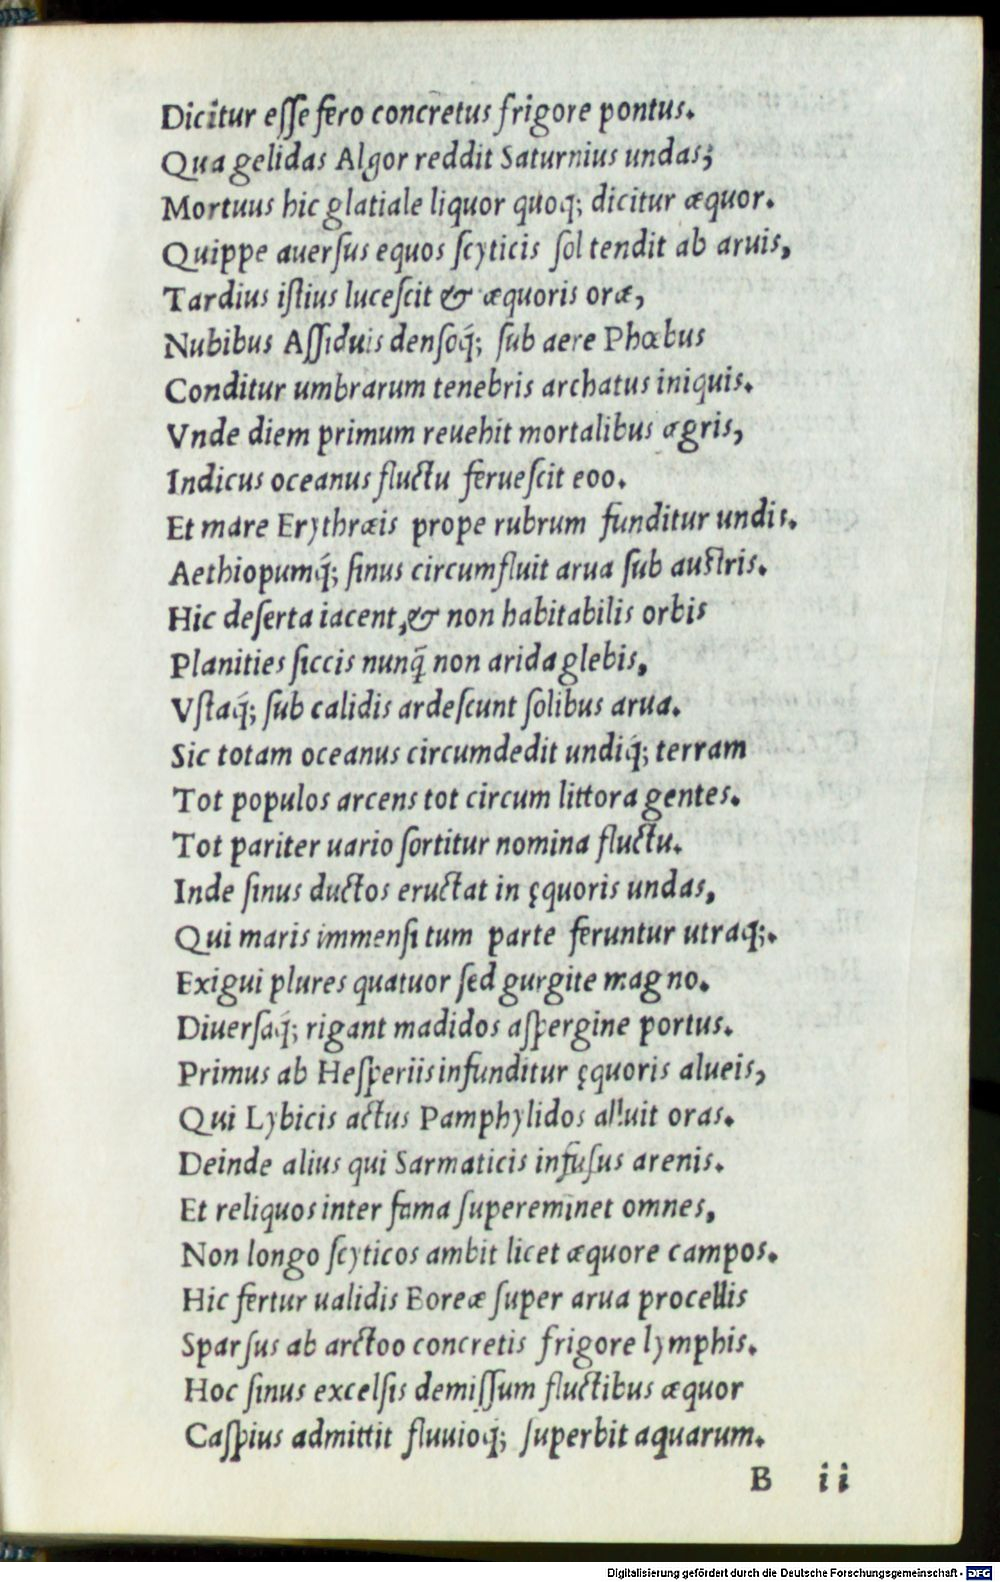 Dicitur eſſe fero concretus frigore pontus.
Qua gelidas Algor reddit Saturnius undas;
Mortuus hic glatiale liquor quoq; dicitur æquor.
Quippe auerſus equos ſcyticis ſol tendit ab aruis,
Tardius iſtius luceſcit & æquoris oræ,
Nubibus Aſſiduis denſoq́; ſub aere Phœbus
Conditur umbrarum tenebris archatus iniquis.
Vnde diem primum reuehit mortalibus ægris,
Indicus oceanus fluctu ferueſcit eoo.
Et mare Erythræis prope rubrum funditur undis.
Aethiopumq́; ſinus circumfluit arua ſub auſtris.
Hic deſerta iacent, & non habitabilis orbis
Planities ſiccis nunq̃ non arida glebis,
Vſtaq́; ſub calidis ardeſcunt ſolibus arua.
Sic totam oceanus circumdedit undiq́; terram
Tot populos arcens tot circum littora gentes.
Tot pariter uario ſortitur nomina fluctu.
Inde ſinus ductos eructat in ęquoris undas,
Qui maris immenſi tum parte feruntur utraq;.
Exigui plures quatuor ſed gurgite magno.
Diuerſaq́; rigant madidos aſpergine portus.
Primus ab Heſperiis infunditur ęquoris alueis,
Qui Lybicis actus Pamphylidos alluit oras.
Deinde alius qui Sarmaticis infuſus arenis.
Et reliquos inter fama ſupereminet omnes,
Non longo ſcyticos ambit licet æquore campos.
Hic fertur ualidis Boreæ ſuper arua procellis
Sparſus ab arctoo concretis frigore lymphis.
Hoc ſinus excelſis demiſſum fluctibus æquor
Caſpius admittit fluuioq́; ſuperbit aquarum.
B ii
Digitalisierung gefördert durch die Deutsche Forschungsgemeinschaft - DFG